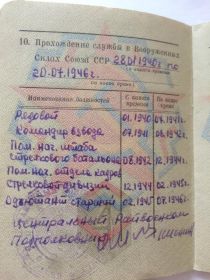 10. Прохождение службы в Вооруженных
Силах Союза ССР 28.01.1940г. по
20.07.1946г.
Наименование должностей
С какого времени
По какое время
Рядовой 01.1940 07.1941
Командир взвода 07.1941 08.1942
Пом. нач. штаба
стрелкового батальона 08.1942 12.1944
Пом. нач. отдела кадров
стрелковой дивизии 12.1944 02.1945
Адъютант старший 02.1945 07.1946
Центральный Райвоенком
Подполковник